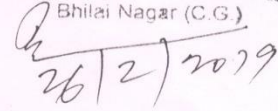 Bhilai Nagar (C.G.)
26/2/2019